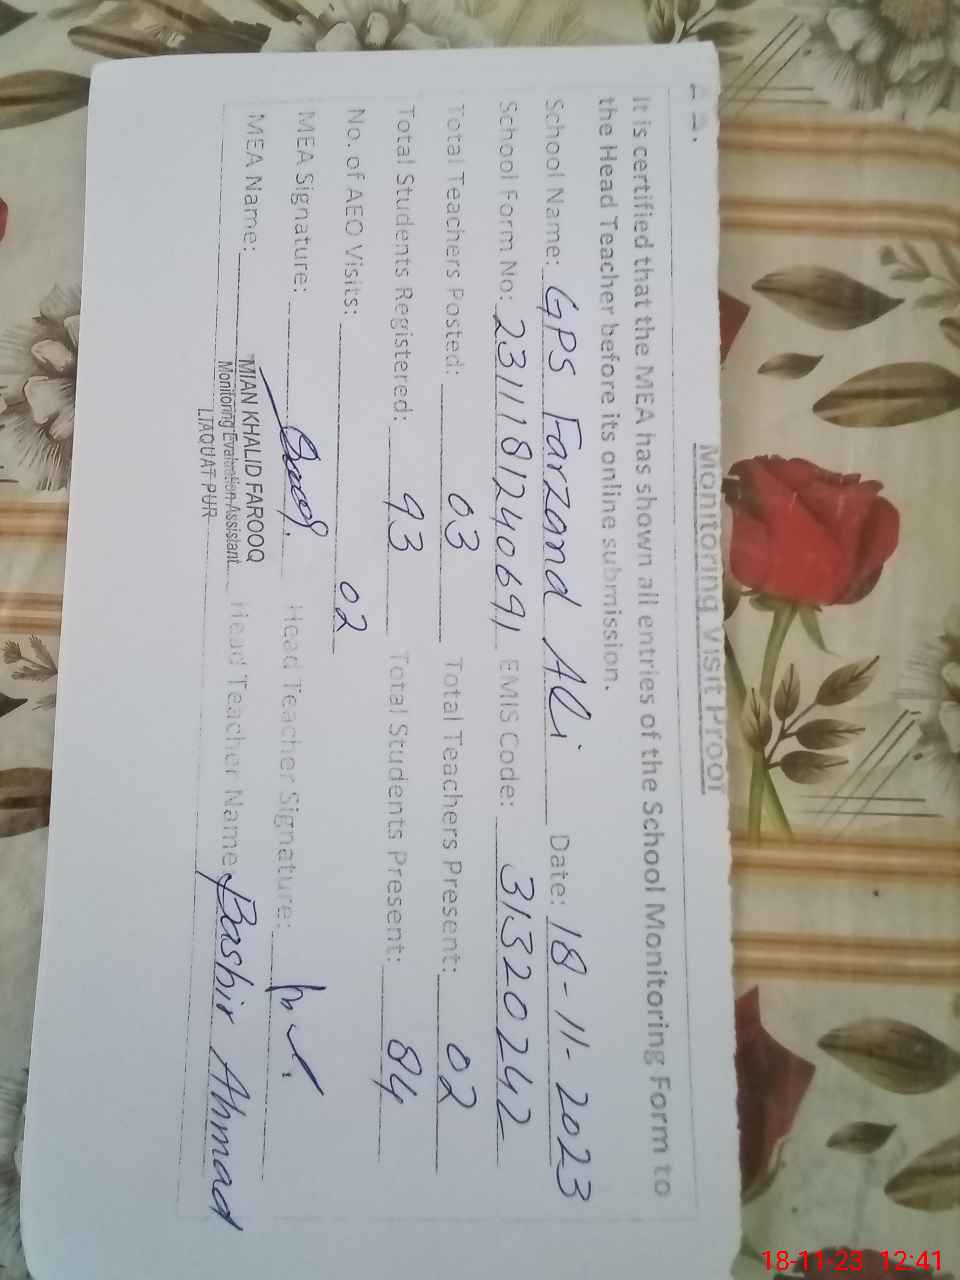 Monitoring Visit Proof
It is certified that the MEA has shown all entries of the School Monitoring Form to
the Head Teacher before its online submission.
School Name: GPS Farzand Ali Date: 18-11-2023
School Form No: 231118124069 1 EMIS Code: 31320242
Total Teachers Posted: 03 Total Teachers Present: 02
Total Students Registered: 93 Total Students Present: 84
No. of AEO Visits: 02
MEA Signature: Head Teacher Signature:
MEA Name: MIAN KHALID FAROOQ Head Teacher Name: Bashir Ahmad
Monitoring Evaluation Assistant
LIAQUAT PUR
18-11-23 12:41